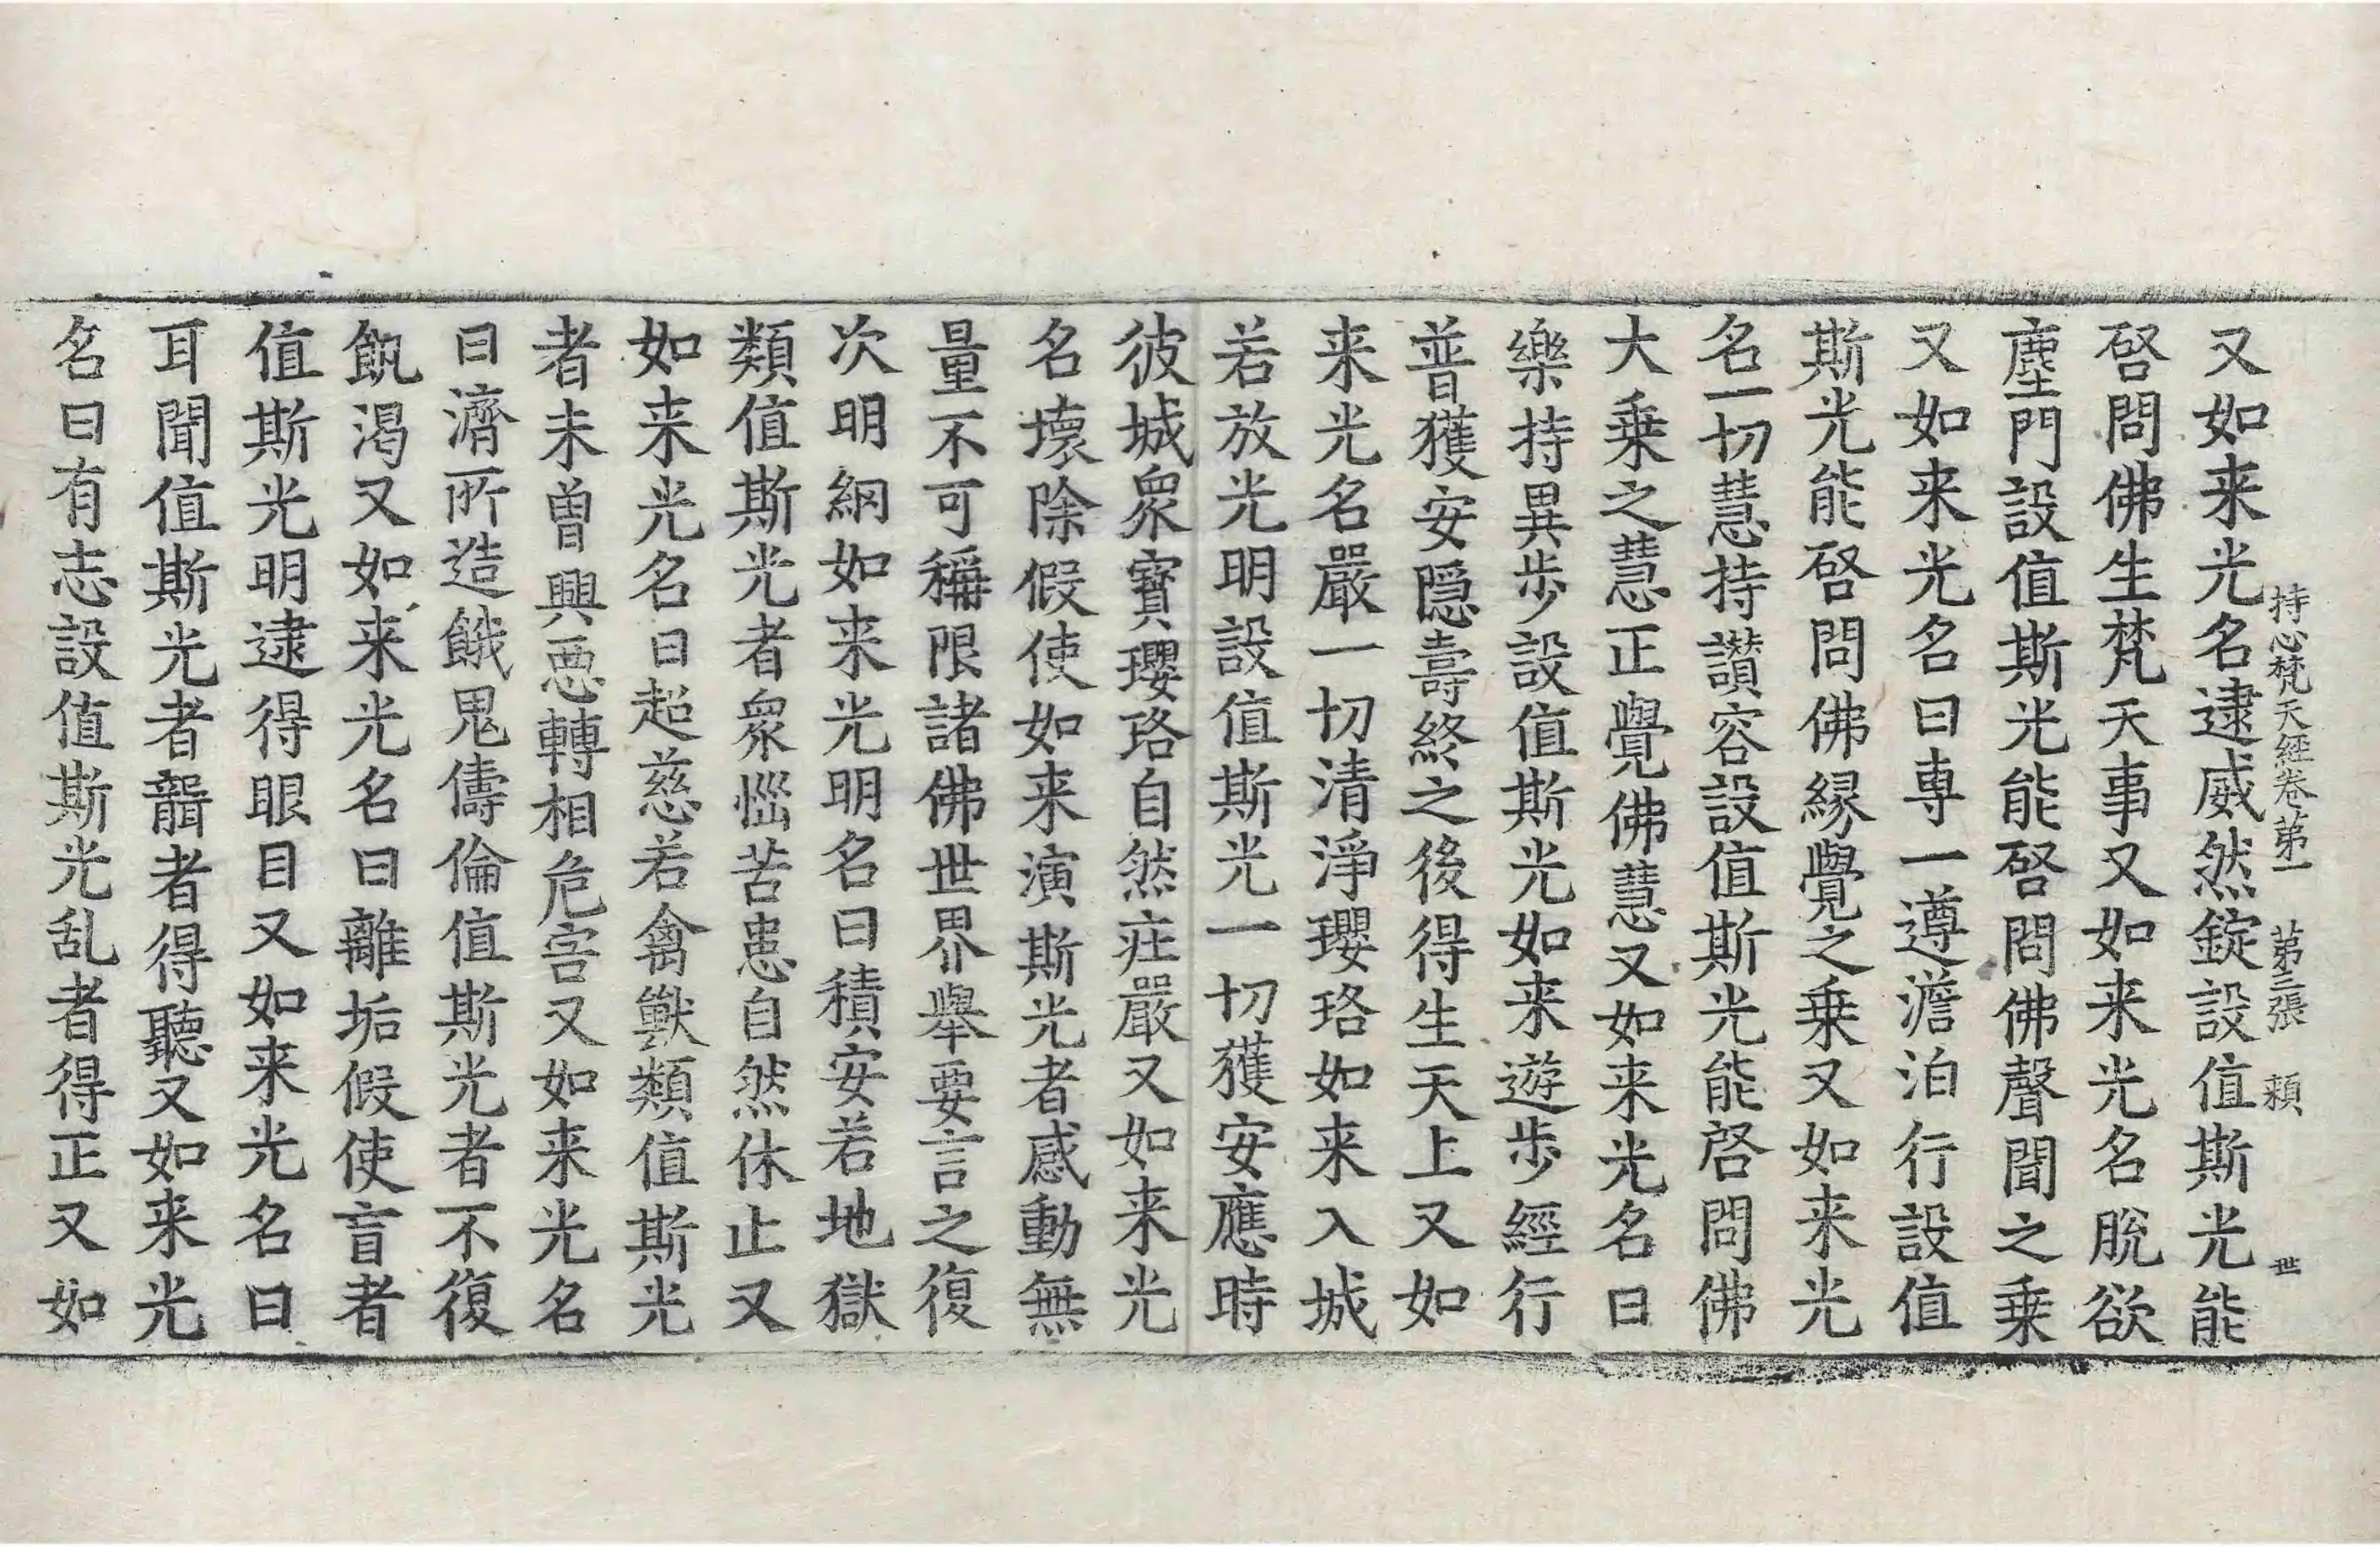 持心梵天經卷第一 第三張 頪 世
又如来光名逮威然錠設值斯光能
啓問佛生梵天事又如来光名脫欲
塵門設值斯光能啓問佛聲聞之乗
又如来光名曰專一遵澹泊行設值
斯光能啓問佛縁覺之乗又如来光
名一切慧持讃容設值斯光能啓問佛
大乗之慧正覺佛慧又如来光名曰
樂持異步設值斯光如来遊步經行
普獲安隱壽終之後得生天上又如
来光名嚴一切清淨瓔珞如来入城
若放光明設值斯光一切獲安應時
彼城衆寳瓔珞自然疘嚴又如来光
名壞除假使如来演斯光者感動無
量不可稱限諸佛世界舉要言之復
次明網如来光明名曰積安若地獄
類值斯光者衆惱苦患自然休止又
如来光名曰超慈若禽獸類值斯光
者未曽興惡轉相危害又如来光名
曰濟所造餓鬼儔倫值斯光者不復
飢渴又如来光名曰離垢假使盲者
值斯光明逮得眼目又如来光名曰
耳聞值斯光者聾者得聽又如来光
名曰有志設值斯光乱者得正又如